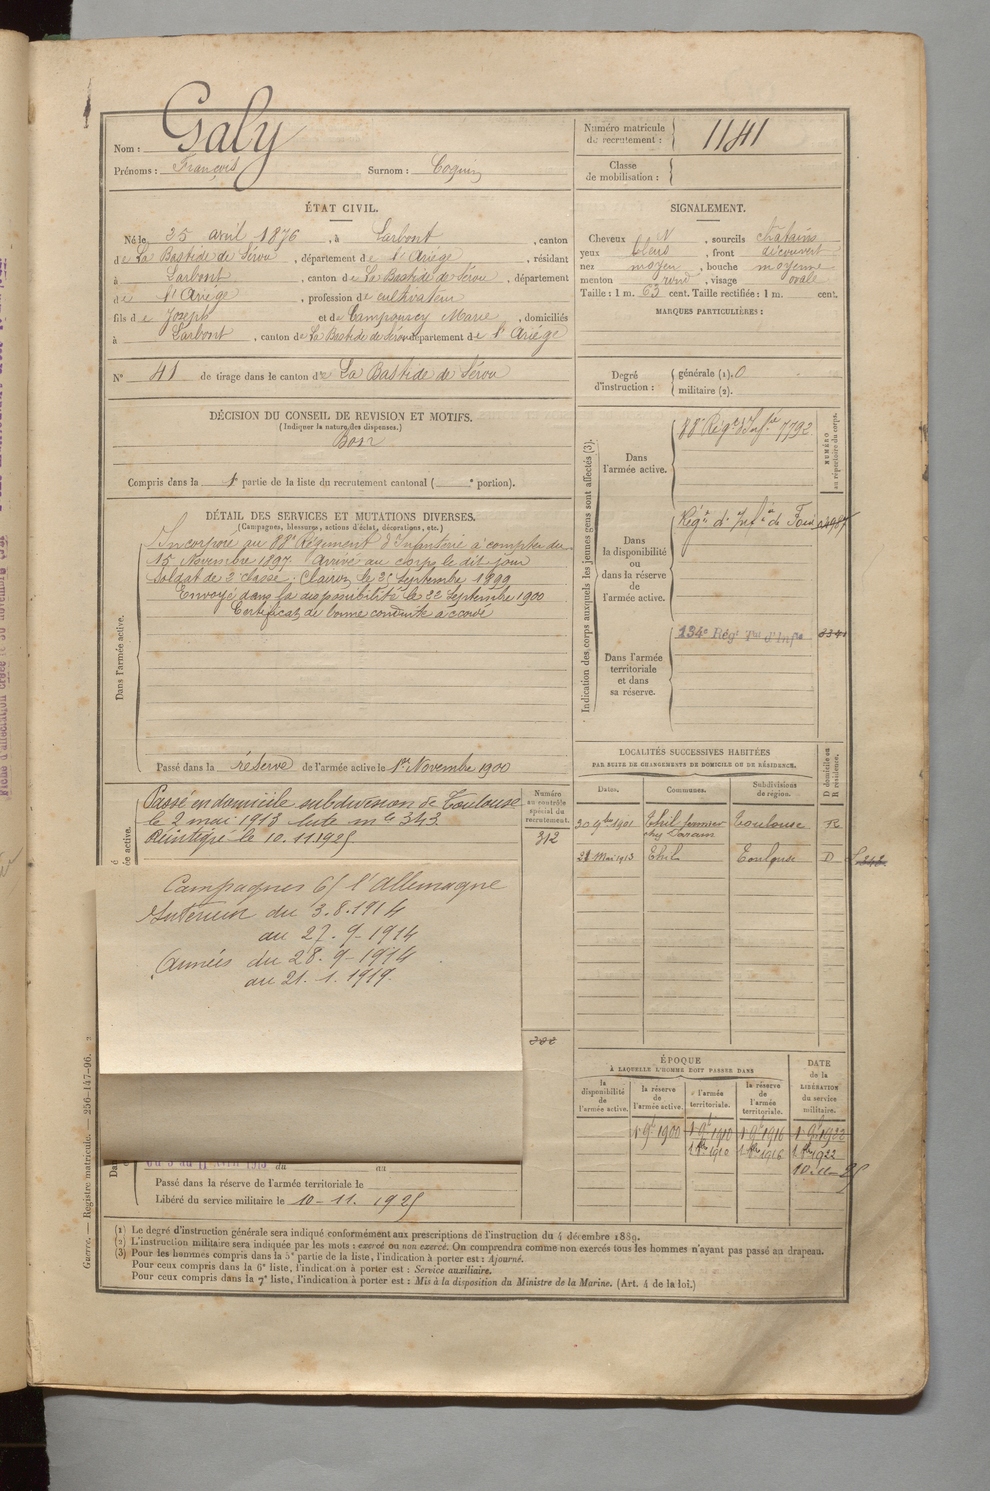 Nom : Galy
Prénoms : François Surnom : Coquin
Numéro matricule de recrutement : 1141
Classe de mobilisation :
ÉTAT CIVIL.
Né le 25 avril 1876, à Larbont, canton
de La Bastide de Sérou, département de l'Ariège, résidant
à Larbont, canton de La Bastide de Sérou, département
de l'Ariège, profession de cultivateur
fils de Joseph et de Campourcy Marie, domiciliés
à Larbont, canton de La Bastide de Sérou département de l'Ariège
N° 41 de tirage dans le canton de La Bastide de Sérou
SIGNALEMENT.
Cheveux N, sourcils châtains
yeux bleus, front découvert
nez moyen, bouche moyenne
menton rond, visage ovale
Taille : 1 m. 63 cent. Taille rectifiée : 1 m. cent.
MARQUES PARTICULIÈRES :
Degré d'instruction : générale (1). 0
militaire (2).
DÉCISION DU CONSEIL DE REVISION ET MOTIFS.
(Indiquer la nature des dispenses.)
Bon
Compris dans la 1e partie de la liste du recrutement cantonal ( e portion).
DÉTAIL DES SERVICES ET MUTATIONS DIVERSES.
(Campagnes, blessures, actions d'éclat, décorations, etc.)
Dans l'armée active.
Incorporé au 88e Régiment d'Infanterie à compter du
15 Novembre 1897. Arrivé au corps le dit jour
soldat de 2e classe; Clairon le 25 Septembre 1899
Envoyé dans la disponibilité le 22 Septembre 1900
Certificat de bonne conduite accordé
Passé dans la réserve de l'armée active le 1er Novembre 1900
Passé en domicile subdivision de Toulouse
le 2 mai 1913 liste m le 343
Réintégré le 10.11.1925
Numéro au contrôle spécial du recrutement.
312
Campagnes c/ l'Allemagne
Intérieur du 3.8.1914
au 27.9.1914
Armées du 28.9.1914
au 21.1.1919.
au
Passé dans la réserve de l'armée territoriale le
Libéré du service militaire le 10-11.1925
Indication des corps auxquels les jeunes gens sont affectés (3).
NUMÉRO au répertoire du corps.
Dans l'armée active.
88e Régt d'Infie 7792
Dans la disponibilité ou dans la réserve de l'armée active.
Régnt d'Infie de Foix
Dans l'armée territoriale et dans sa réserve.
134e Régt Tal d'Infie
LOCALITÉS SUCCESSIVES HABITÉES
PAR SUITE DE CHANGEMENTS DE DOMICILE OU DE RÉSIDENCE.
Dates. Communes. Subdivisions de région. D domicile ou R résidence.
20 9bre 1901 Thil fermier Toulouse R
21 Mai 1913 Thil Toulouse D
ÉPOQUE
À LAQUELLE L'HOMME DOIT PASSER DANS
la disponibilité de l'armée active.
la réserve de l'armée active.
l'armée territoriale.
la réserve de l'armée territoriale.
DATE de la LIBÉRATION du service militaire.
1 9bre 1900 1 9bre 1910 1 9bre 1916 1 9bre 1922
1 8bre 1910 1 8bre 1916 1 8bre 1922
10-11-25
(1) Le degré d'instruction générale sera indiqué conformément aux prescriptions de l'instruction du 4 décembre 1889.
(2) L'instruction militaire sera indiquée par les mots : exercé ou non exercé. On comprendra comme non exercés tous les hommes n'ayant pas passé au drapeau.
(3) Pour les hommes compris dans la 5e partie de la liste, l'indication à porter est : Ajourné.
Pour ceux compris dans la 6e liste, l'indication à porter est : Service auxiliaire.
Pour ceux compris dans la 7e liste, l'indication à porter est : Mis à la disposition du Ministre de la Marine. (Art. 4 de la loi.)
Guerre. — Registre matricule. — 256-147-96.